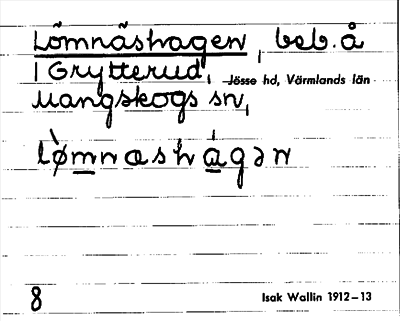 Lõmnãshagen, beb. å
1 Grytterud, Jösse hd, Värmlands län
Mangskogs sn,
lø̀mnashágən
8
Isak Wallin 1912–13